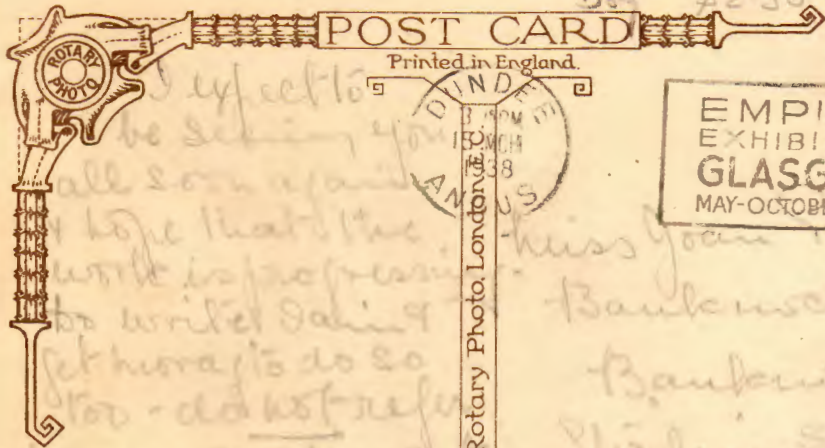 POST CARD
Printed in England.
ROTARY
PHOTO
DUNDEE
PM
15 MCH
1938
ANGUS
EMPI
EXHIBI
GLASG
MAY-OCTOBE
Rotary Photo, London, E.C.
I expect to
be seeing you
all soon again
& hope that the
work is progressing.
to do so
too - do not refer
Miss Joan